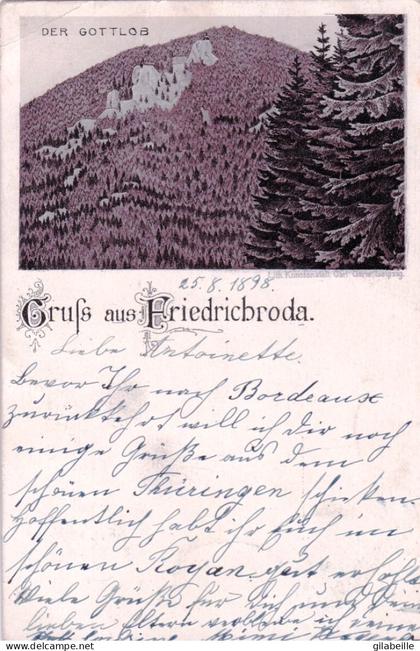 DER GOTTLOB
Lith. Kunstanstalt Carl Garte, Leipzig.
25.8.1898.
Gruſs aus Friedrichroda.
Liebe Antoinette.
Bevor Ihr nach Bordeaux
zurückkehrt will ich dir noch
einige Grüße aus dem
schönen Thüringen schicken.
Hoffentlich habt ihr Euch im
schönen Royan gut erholt
Viele Grüße für Dich und
lieben Eltern ich
© Delcampe / gilabeille